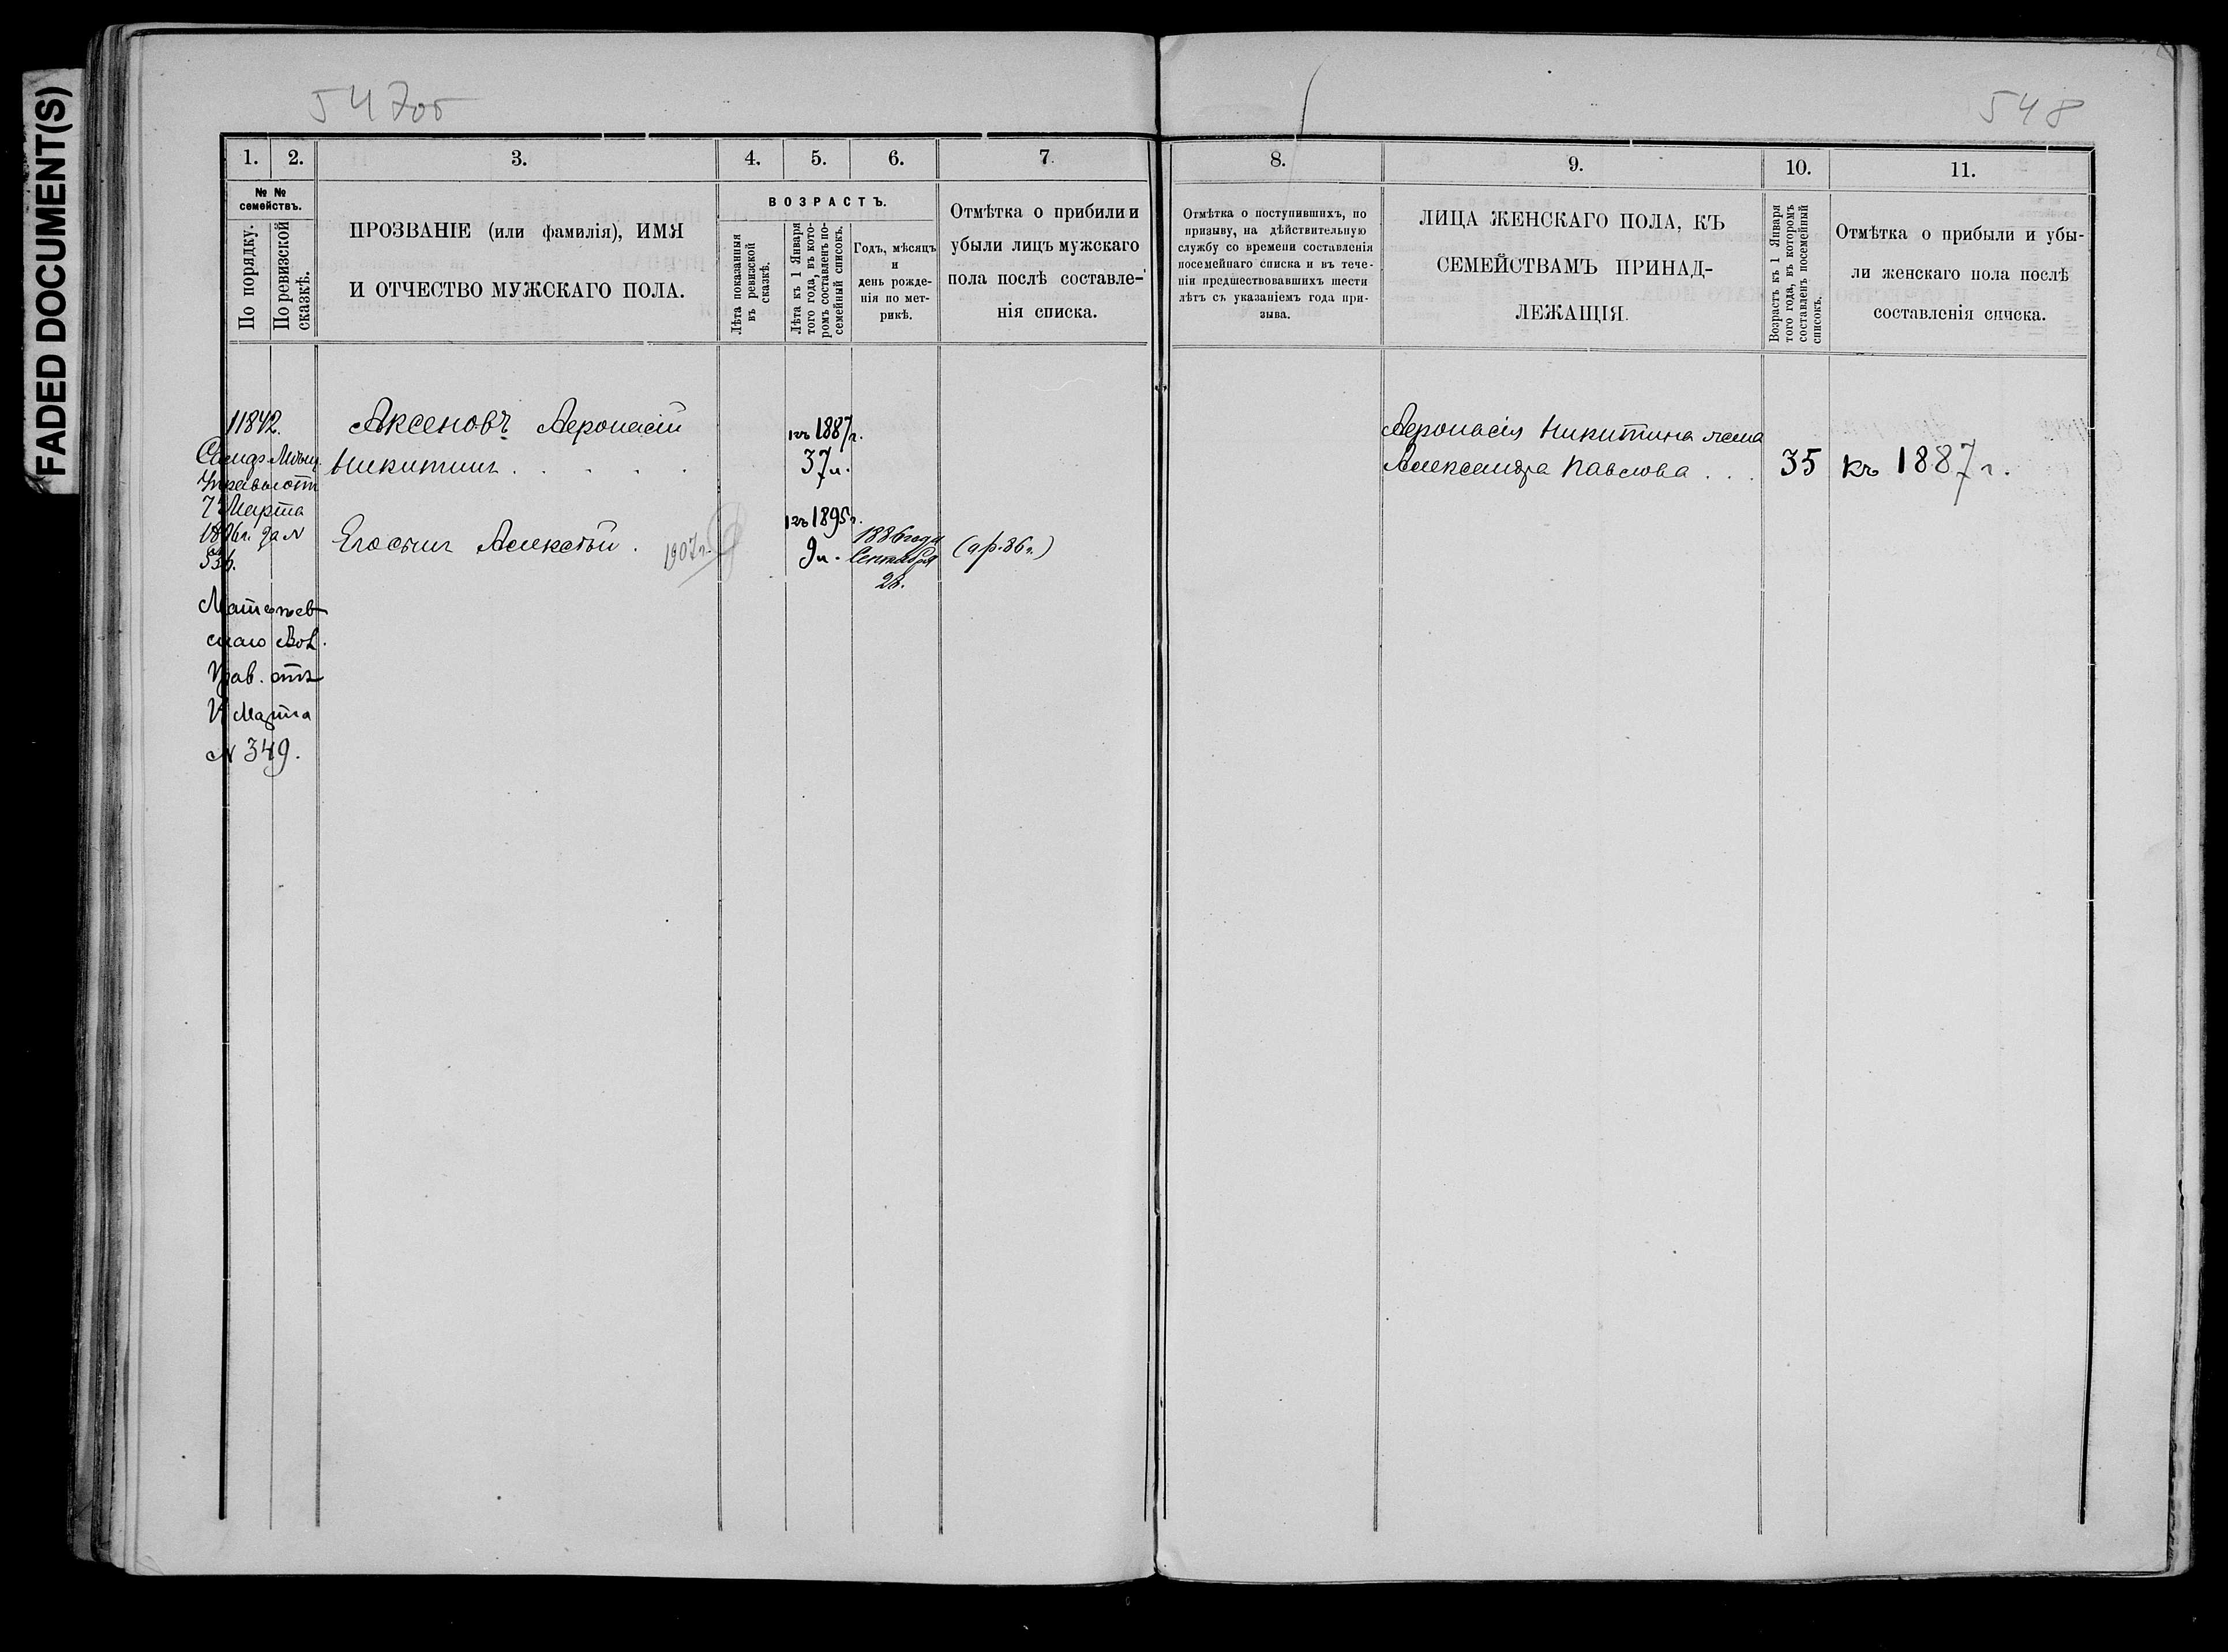 FADED DOCUMENT(S)
547об
548
1.
2.
3.
4.
5.
6.
7.
8.
9.
10.
11.
№ №
семействъ.
По порядку.
По ревизской
сказкѣ.
ПРОЗВАНІЕ (или фамилія), ИМЯ
И ОТЧЕСТВО МУЖСКАГО ПОЛА.
ВОЗРАСТЪ.
Лѣта показанныя
въ ревизской
сказкѣ.
Лѣта къ 1 Января
того года, въ кото-
ромъ составленъ по-
семейный списокъ.
Годъ, мѣсяцъ
и
день рожде-
нія по мет-
рикѣ.
Отмѣтка о прибили и
убыли лицъ мужскаго
пола послѣ составле-
нія списка.
Отмѣтка о поступившихъ, по
призыву, на дѣйствительную
службу со времени составленія
посемейнаго списка и въ тече-
ніи предшествовавшихъ шести
лѣтъ съ указаніемъ года при-
зыва.
ЛИЦА ЖЕНСКАГО ПОЛА, КЪ
СЕМЕЙСТВАМЪ ПРИНАД-
ЛЕЖАЩІЯ.
Возрастъ къ 1 Января
того года, въ которомъ
составленъ посемейный
списокъ.
Отмѣтка о прибыли и убы-
ли женскаго пола послѣ
составленія списка.
11842.
7 Марта
Прав. отъ
Марта
N 349.
Аксеновъ Афонасій
Никитинъ . . . . .
Его сынъ Алексѣй . 1907 г.
къ 1887 г.
37 л.
къ 1895 г.
9 л.
1886 года
Сентября
28.
(ар. 86 г.)
Афонасія Никитина жена
Александра Павлова . . .
35
къ 1887 г.